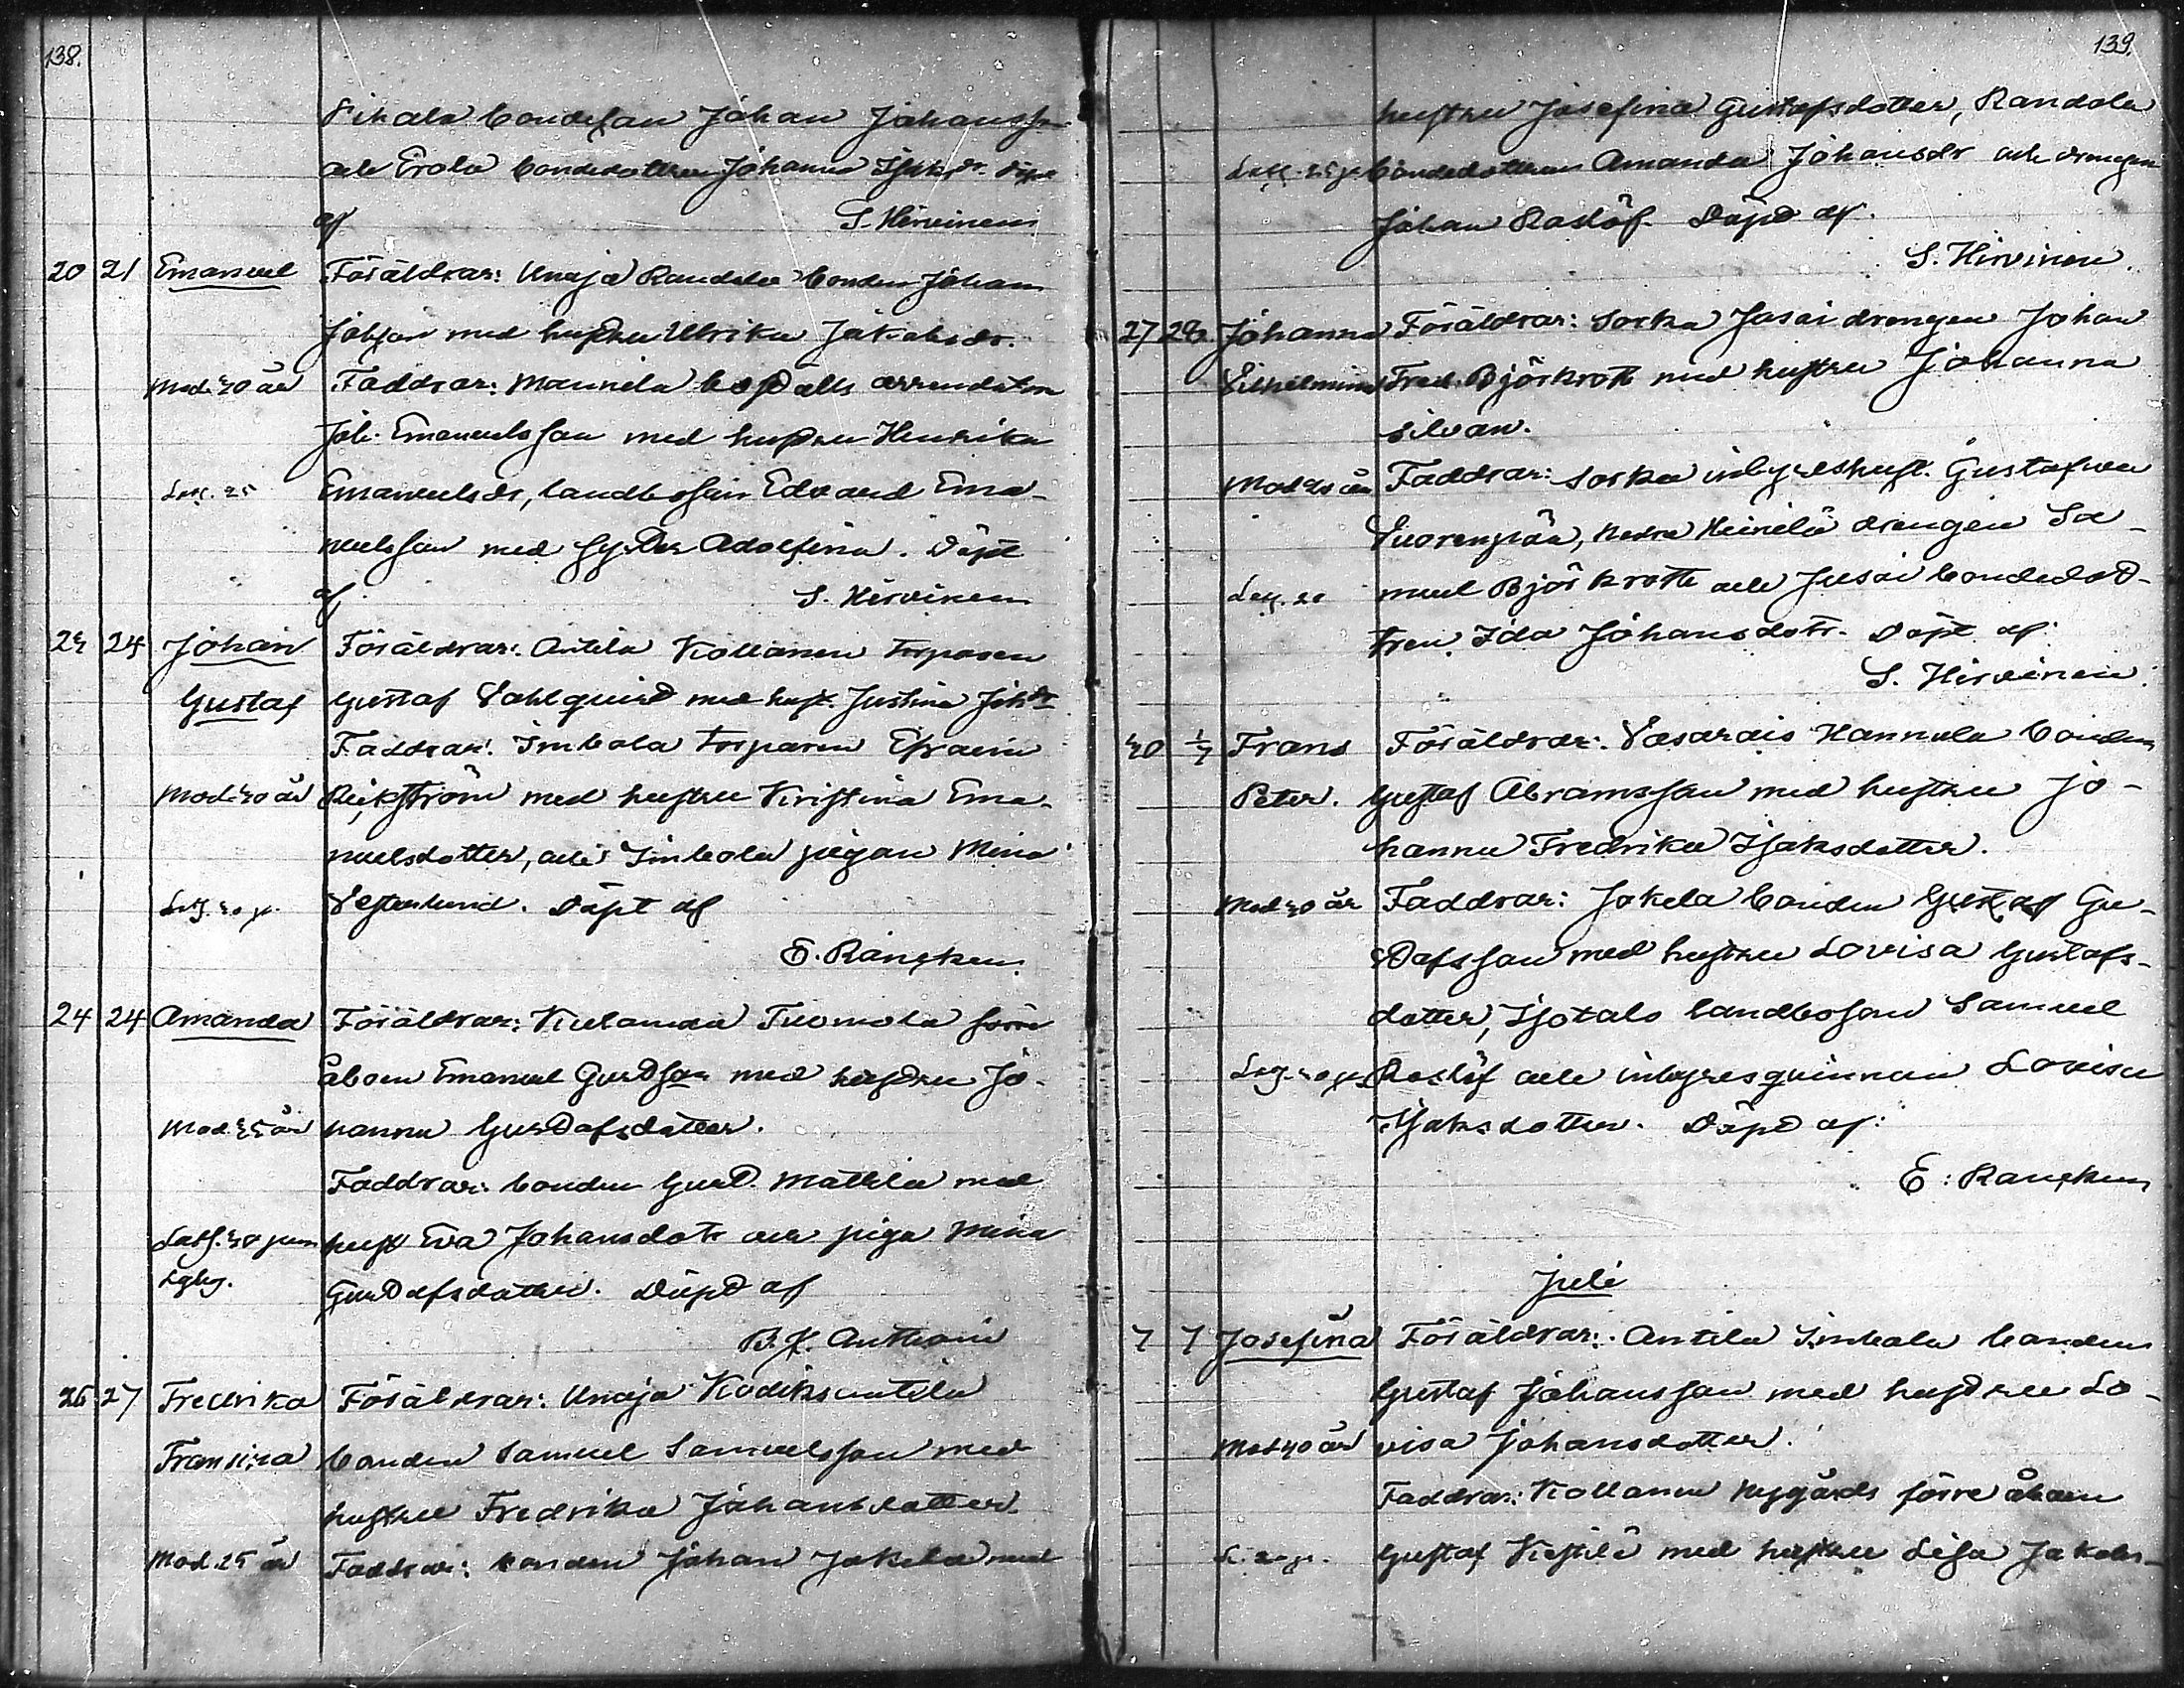 138.
Pihala bondeson Johan Johansson
och Erola bondedottren Johanna Isaksdr. Döpt
af S. Hirvinen
20 21 Emanuel Föräldrar: Unaja Randala bonden Johan
Johsson med hustru Ulrika Jakobsdr.
Mod. 40 år Faddrar: Mannila boställs arrendatorn
Joh. Emanuelsson med hustru Henrika
Emanuelsdr, landboson Edvard Ema-
nuelsson med syster Adolfina. Döpt
af S. Hirvinen
23 24 Johan Föräldrar: Antila Kollanen torparen
Gustaf Gustaf Vahlquist med hust. Justina Johdr
Faddrar: Simbola torparen Efraim
Mod. 40 år Rikström med hustru Kristina Ema-
nuelsdotter, och Simbola pigan Mina
Vesterlund. Döpt af
E. Rancken
24 24 Amanda Föräldrar: Kulamaa Tuomola förre
åboen Emanuel Gustsson med hustru Jo-
Mod. 35 år hanna Gustafsdotter.
Faddrar: bonden Gust. Mattila med
hust Eva Johansdotr och piga Mina
Gustafsdotter. Döpt af
B. K. Anthoni
26 27 Fredrika Föräldrar: Unaja Kodiksantila
Fransina bonden Samuel Samuelsson med
hustru Fredrika Johansdotter.
Mod. 25 år Faddrar: bonden Johan Jakola med
139.
hustru Josefina Gustafsdotter, Randala
bondedottren Amanda Johansdr och drengen
Johan Raslöf. Döpt af
S. Hirvinen.
27 28 Johanna Föräldrar: Sorka Jusai drengen Johan
Vilhelmina Fred. Björkrott med hustru Johanna
Silvan.
Faddrar: Sorka inhyseshust. Gustafva
Vuorenpää, Nedre Heinilä drengen Sa-
muel Björkrott och Jusai bondedot-
tren Ida Johansdotr. Döpt af:
S. Hirvinen.
30 1/7 Frans Föräldrar: Vasarais Hannula bonden
Peter. Gustaf Abramsson med hustru Jo-
hanna Fredrika Isaksdotter.
Mod 40 år Faddrar: Jokela bonden Gustaf Gu-
stafsson med hustru Lovisa Gustafs-
dotter, Isotalo landboson Samuel
Raslöf och inhysesqvinnan Lovisa
Isaksdotter. Döpt af:
E: Rancken
Juli
7 7 Josefina Föräldrar: Antila Simbola bonden
Gustaf Johansson med hustru Lo-
Mod 40 år visa Johansdotter.
Faddrar: Kollanen Nygårds förre åboen
Gustaf Kestilä med hustru Lisa Jakobs-